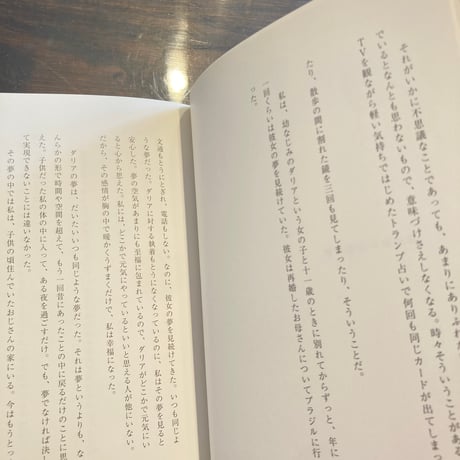 それがいかに不思議なことであっても、あまりにありふれ
ているとなんとも思わないもので、意味づけさえしなくなる。時々そういうことがある
TVを観ながら軽い気持ちではじめたトランプ占いで何回も同じカードが出てしまっ
たり、散歩の間に割れた鏡を三回も見てしまったり、そういうことだ。
私は、幼なじみのダリアという女の子と十一歳のときに別れてからずっと、年に
一回くらいは彼女の夢を見続けていた。彼女は再婚したお母さんについてブラジルに行
った。
文通もとうにとぎれ、電話もしない。なのに、彼女の夢を見続けてきた。いつも同じよ
うな夢だった。ダリアに対する執着もとうになくなっているのに、私はその夢を見ると
安心した。夢の空気があまりにも至福に包まれているので、ダリアがどこかで元気にい
ると心から思えた。私には、どこかで元気にやっているといいと思える人が他にいない。
だから、その感情が胸の中で暖かくうずまくだけで、私は幸福になった。
ダリアの夢は、だいたいいつも同じような夢だった。それは夢というよりも、な
んらかの形で時間や空間を超えて、もう一回昔にあったことの中に戻るだけのことに思
えた。子供だった私の体の中に入って、ある夜を過ごすだけ。でも、夢でなければ決し
て実現できないことには違いなかった。
その夢の中では私は、子供の頃住んでいたおじさんの家にいる。今はもうとっ